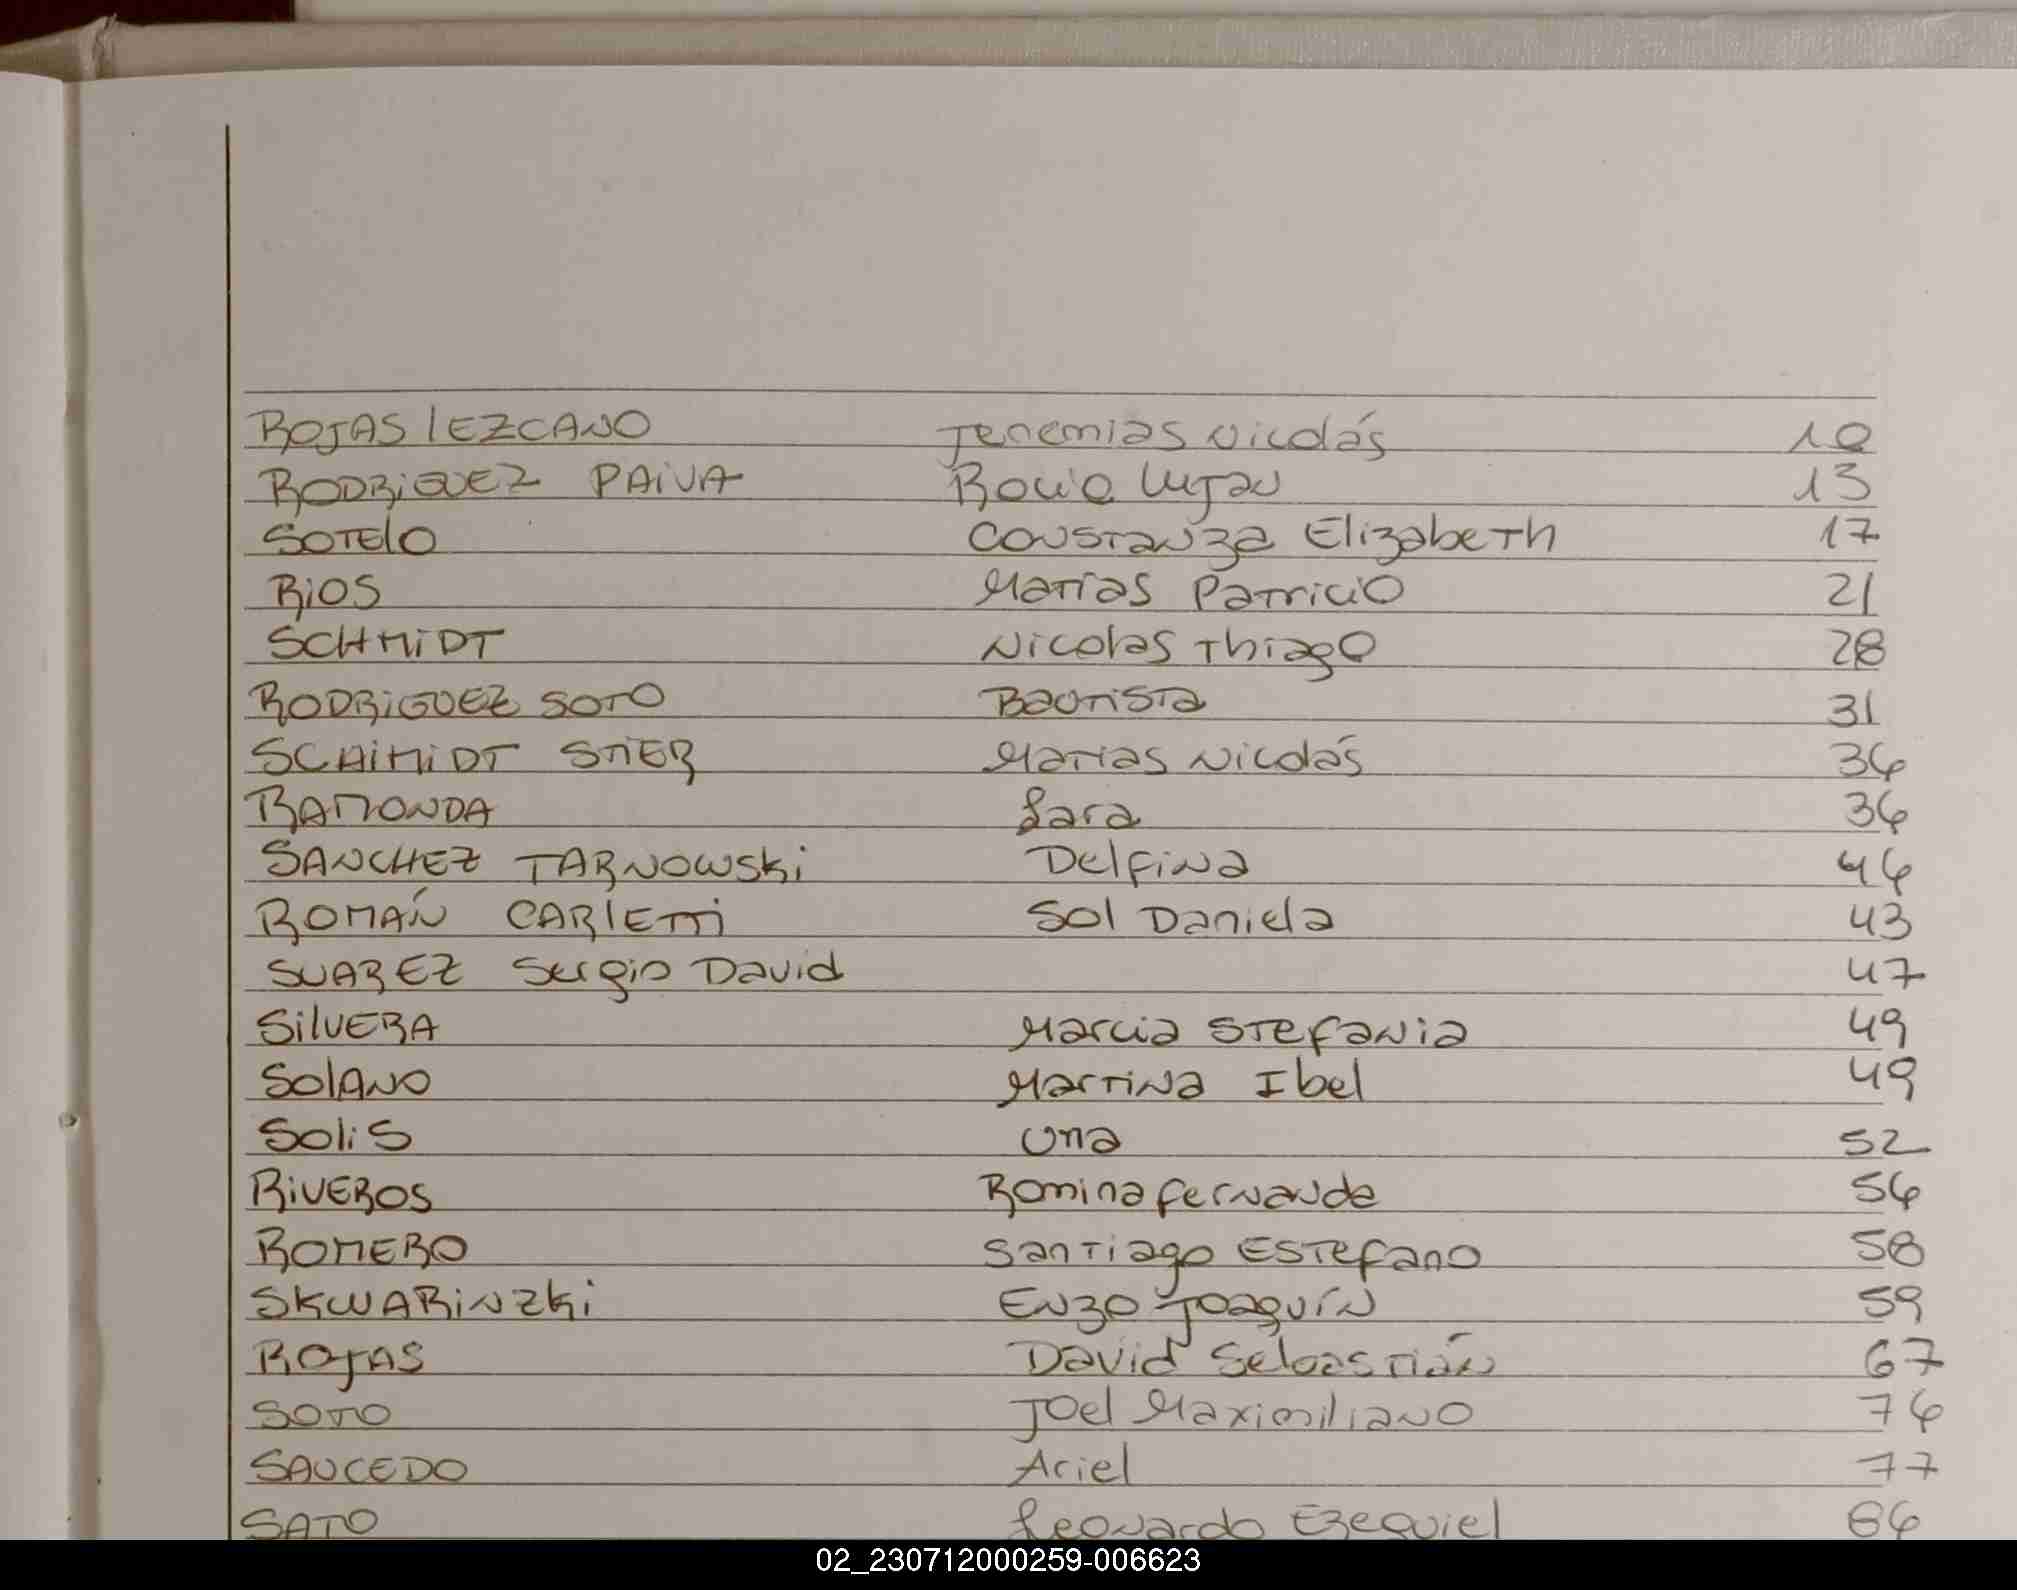 ROJAS LEZCANO Jeremias Nicolás 10
RODRIGUEZ PAIVA Rocio Lujan 13
SOTELO Constanza Elizabeth 17
RIOS Matías Patricio 21
SCHMIDT Nicolas Thiago 28
RODRIGUEZ SOTO Bautista 31
SCHIMIDT STIER Matias Nicolás 34
RAMONDA Lara 34
SANCHEZ TARNOWSKI Delfina 44
ROMÁN CARLETTI Sol Daniela 43
SUAREZ Sergio David 47
SILVERA Marcia Stefania 49
SOLANO Martina Ibel 49
SOLIS Uma 52
RIVEROS Romina Fernanda 54
ROMERO Santiago Estefano 58
SKWARINZKI Enzo Joaquín 59
ROJAS David Sebastián 67
SOTO Joel Maximiliano 74
SAUCEDO Ariel 77
SATO Leonardo Ezequiel 84
02_230712000259-006623